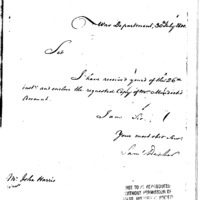 War Department, 30 July 1800.
Sir
I have received yours of the 26th
inst. and enclose the requested Copy of Mr
Account.
I am Sir
Your most obt Servt
Saml Dexter
Mr John Harris
NOT TO BE REPRODUCED
WITHOUT PERMISSION OF